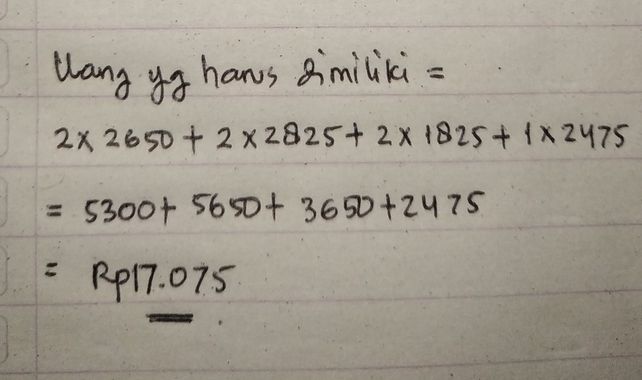 Uang yg harus dimiliki =
2 x 2650 + 2 x 2825 + 2 x 1825 + 1 x 2475
= 5300 + 5650 + 3650 + 2475
= Rp17.075